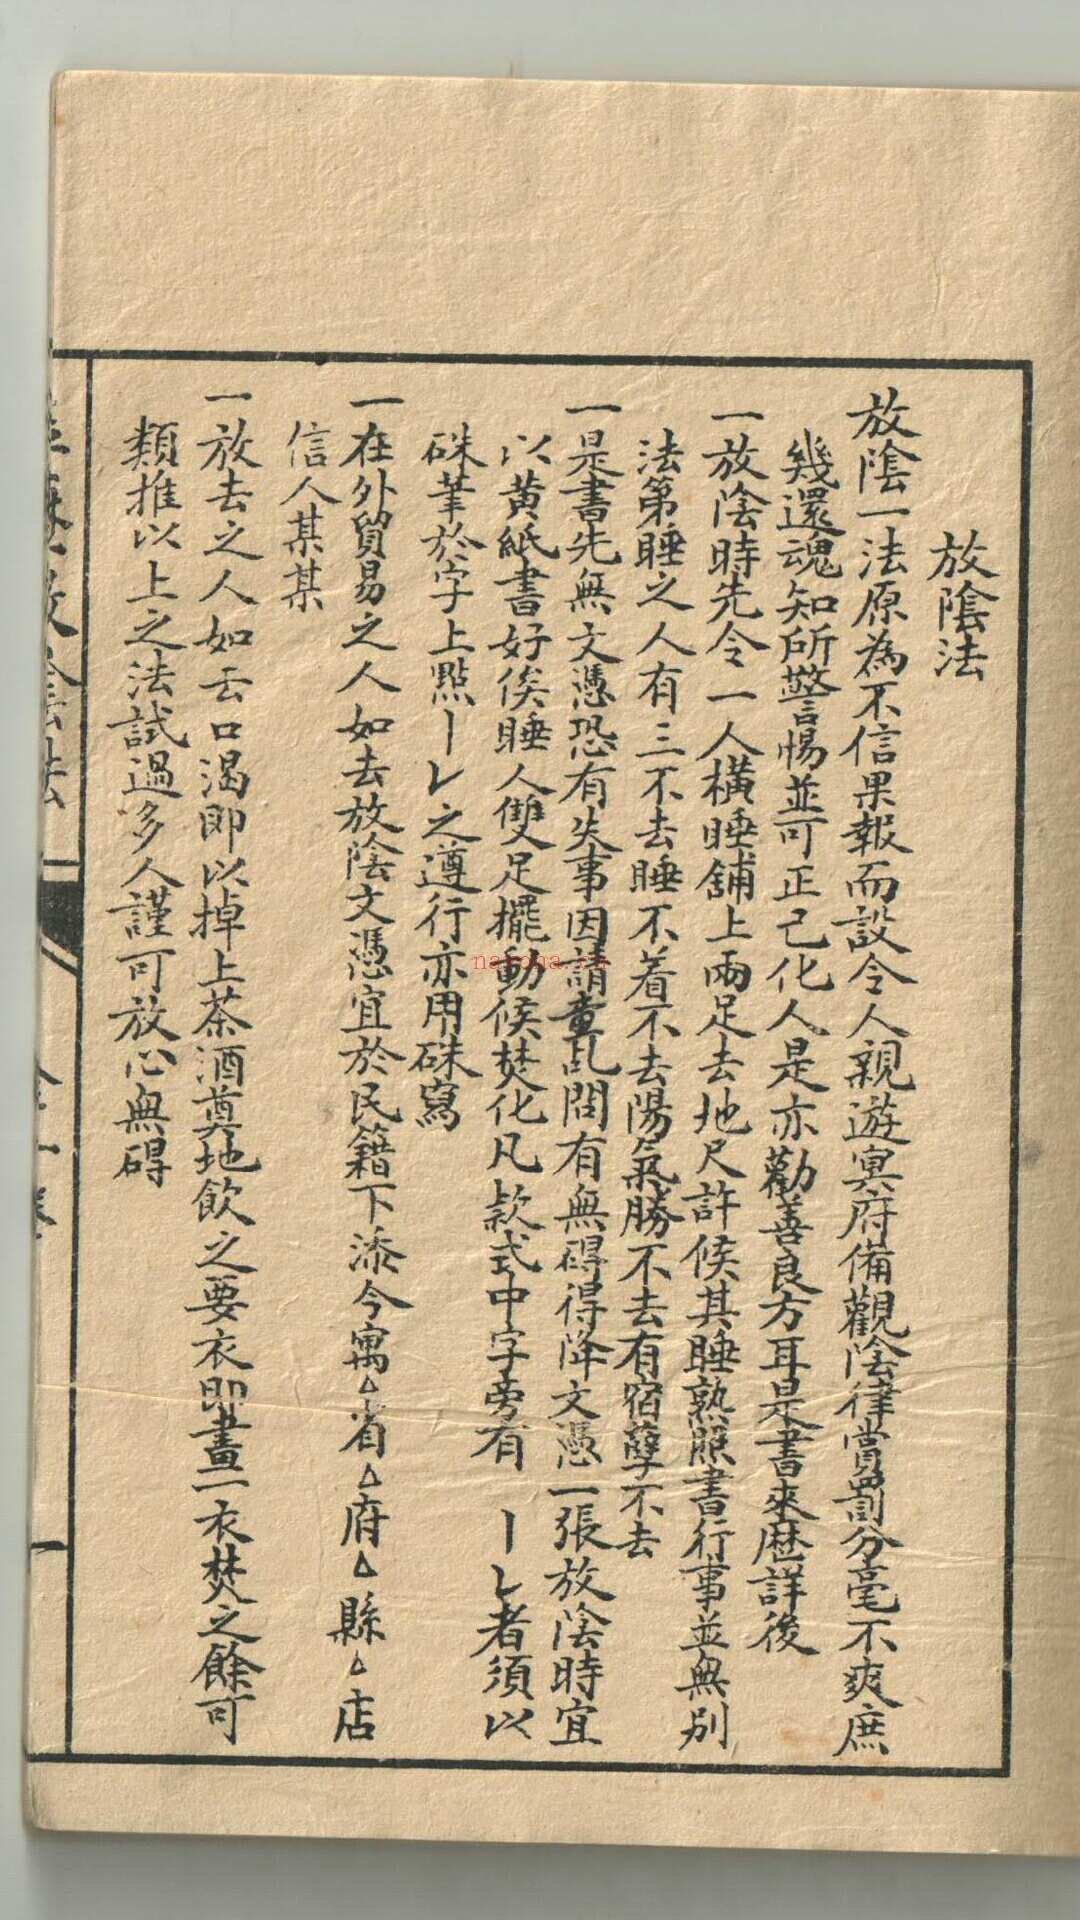 放陰法
放陰一法原為不信果報而設令人親遊冥府備觀陰律賞罰分毫不爽庶
幾還魂知所警惕並可正己化人是亦勸善良方耳是書來歷詳後
一放陰時先令一人橫睡舖上兩足去地尺許候其睡熟照書行事並無別
法第睡之人有三不去睡不着不去陽氣勝不去有宿孽不去
一是書先無文憑恐有失事因請童乩問有無碍得降文憑一張放陰時宜
以黄紙書好俟睡人雙足擺動候焚化凡款式中字旁有 丨レ者須以
硃筆於字上點丨レ之遵行亦用硃寫
一在外貿易之人如去放陰文憑宜於民籍下添今寓△省△府△縣△店
信人某某
一放去之人如云口渴即以掉上茶酒奠地飲之要衣即畫一衣焚之餘可
類推以上之法試過多人謹可放心無碍